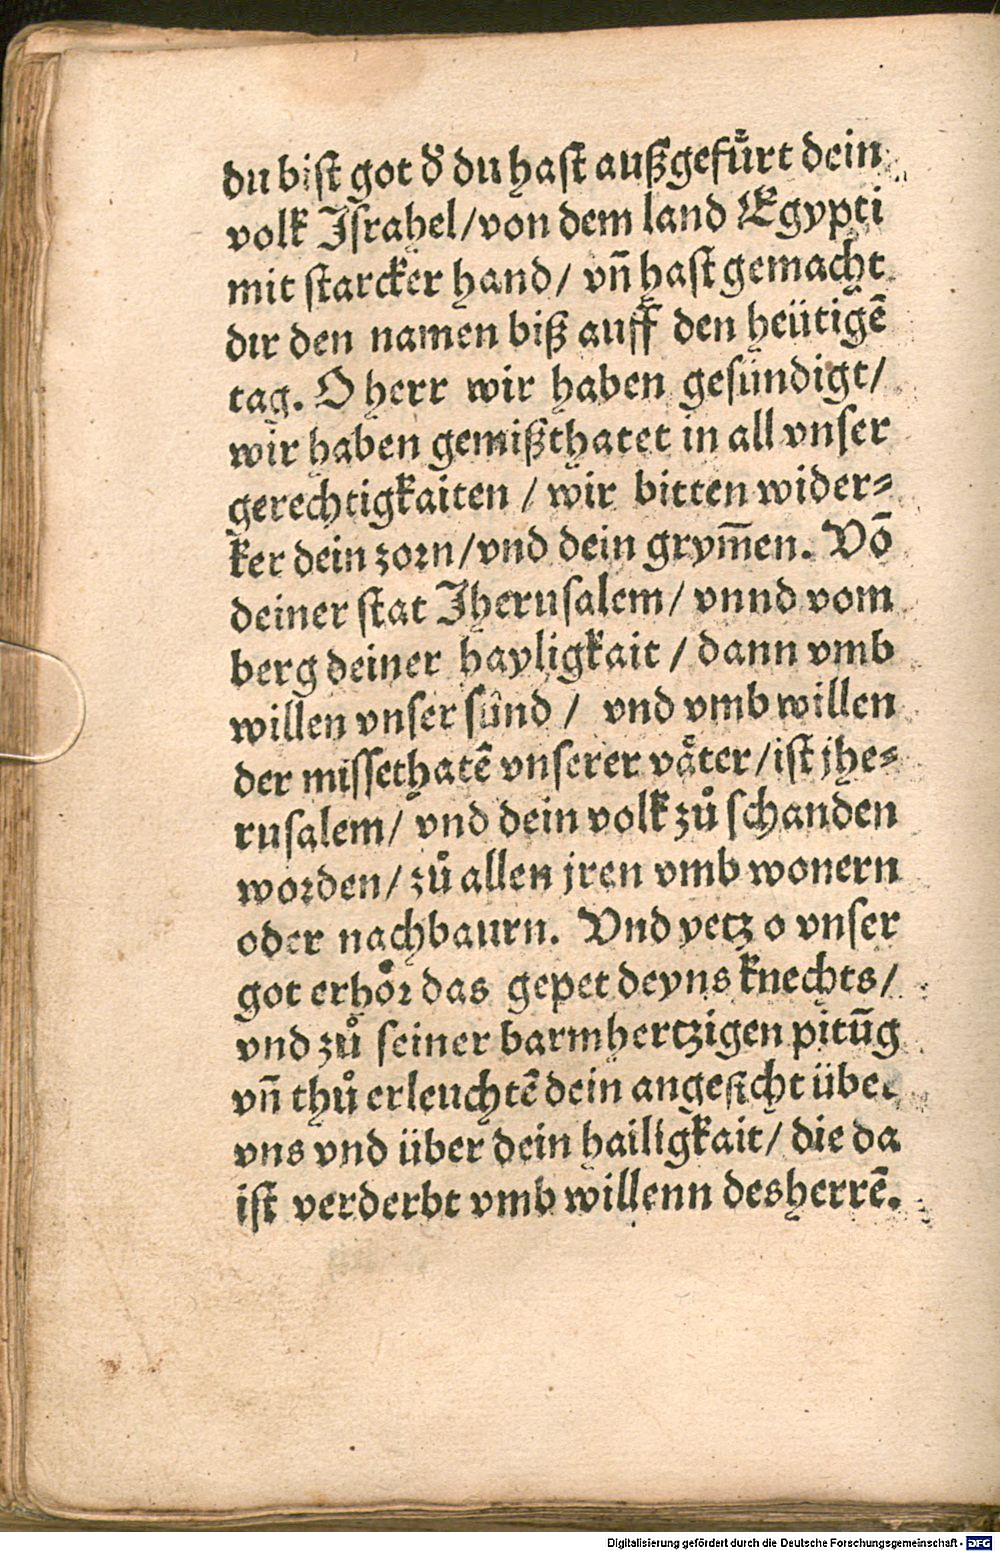 du bist got d̕ du hast außgefuͤrt dein
volk Jsrahel/von dem land Egypti
mit starcker hand/ vn̄ hast gemacht
dir den namen biß auff den heütigē
tag. O herr wir haben gesündigt/
wir haben gemißthatet in all vnser
gerechtigkaiten / wir bitten wider⸗
ker dein zorn/vnd dein grym̄en. Vō
deiner stat Jherusalem/ vnnd vom
berg deiner hayligkait / dann vmb
willen vnser sünd / vnd vmb willen
der missethatē vnserer vaͤter/ist jhe⸗
rusalem/ vnd dein volk zuͦ schanden
worden/ zuͦ allen jren vmb wonern
oder nachbaurn. Vnd yetz o vnser
got erhoͤr das gepet deyns knechts/
vnd zuͦ seiner barmhertzigen pitūg
vn̄ thuͦ erleuchtē dein angesicht über
vns vnd über dein hailigkait/ die da
ist verderbt vmb willenn des herrē.
Digitalisierung gefördert durch die Deutsche Forschungsgemeinschaft - DFG